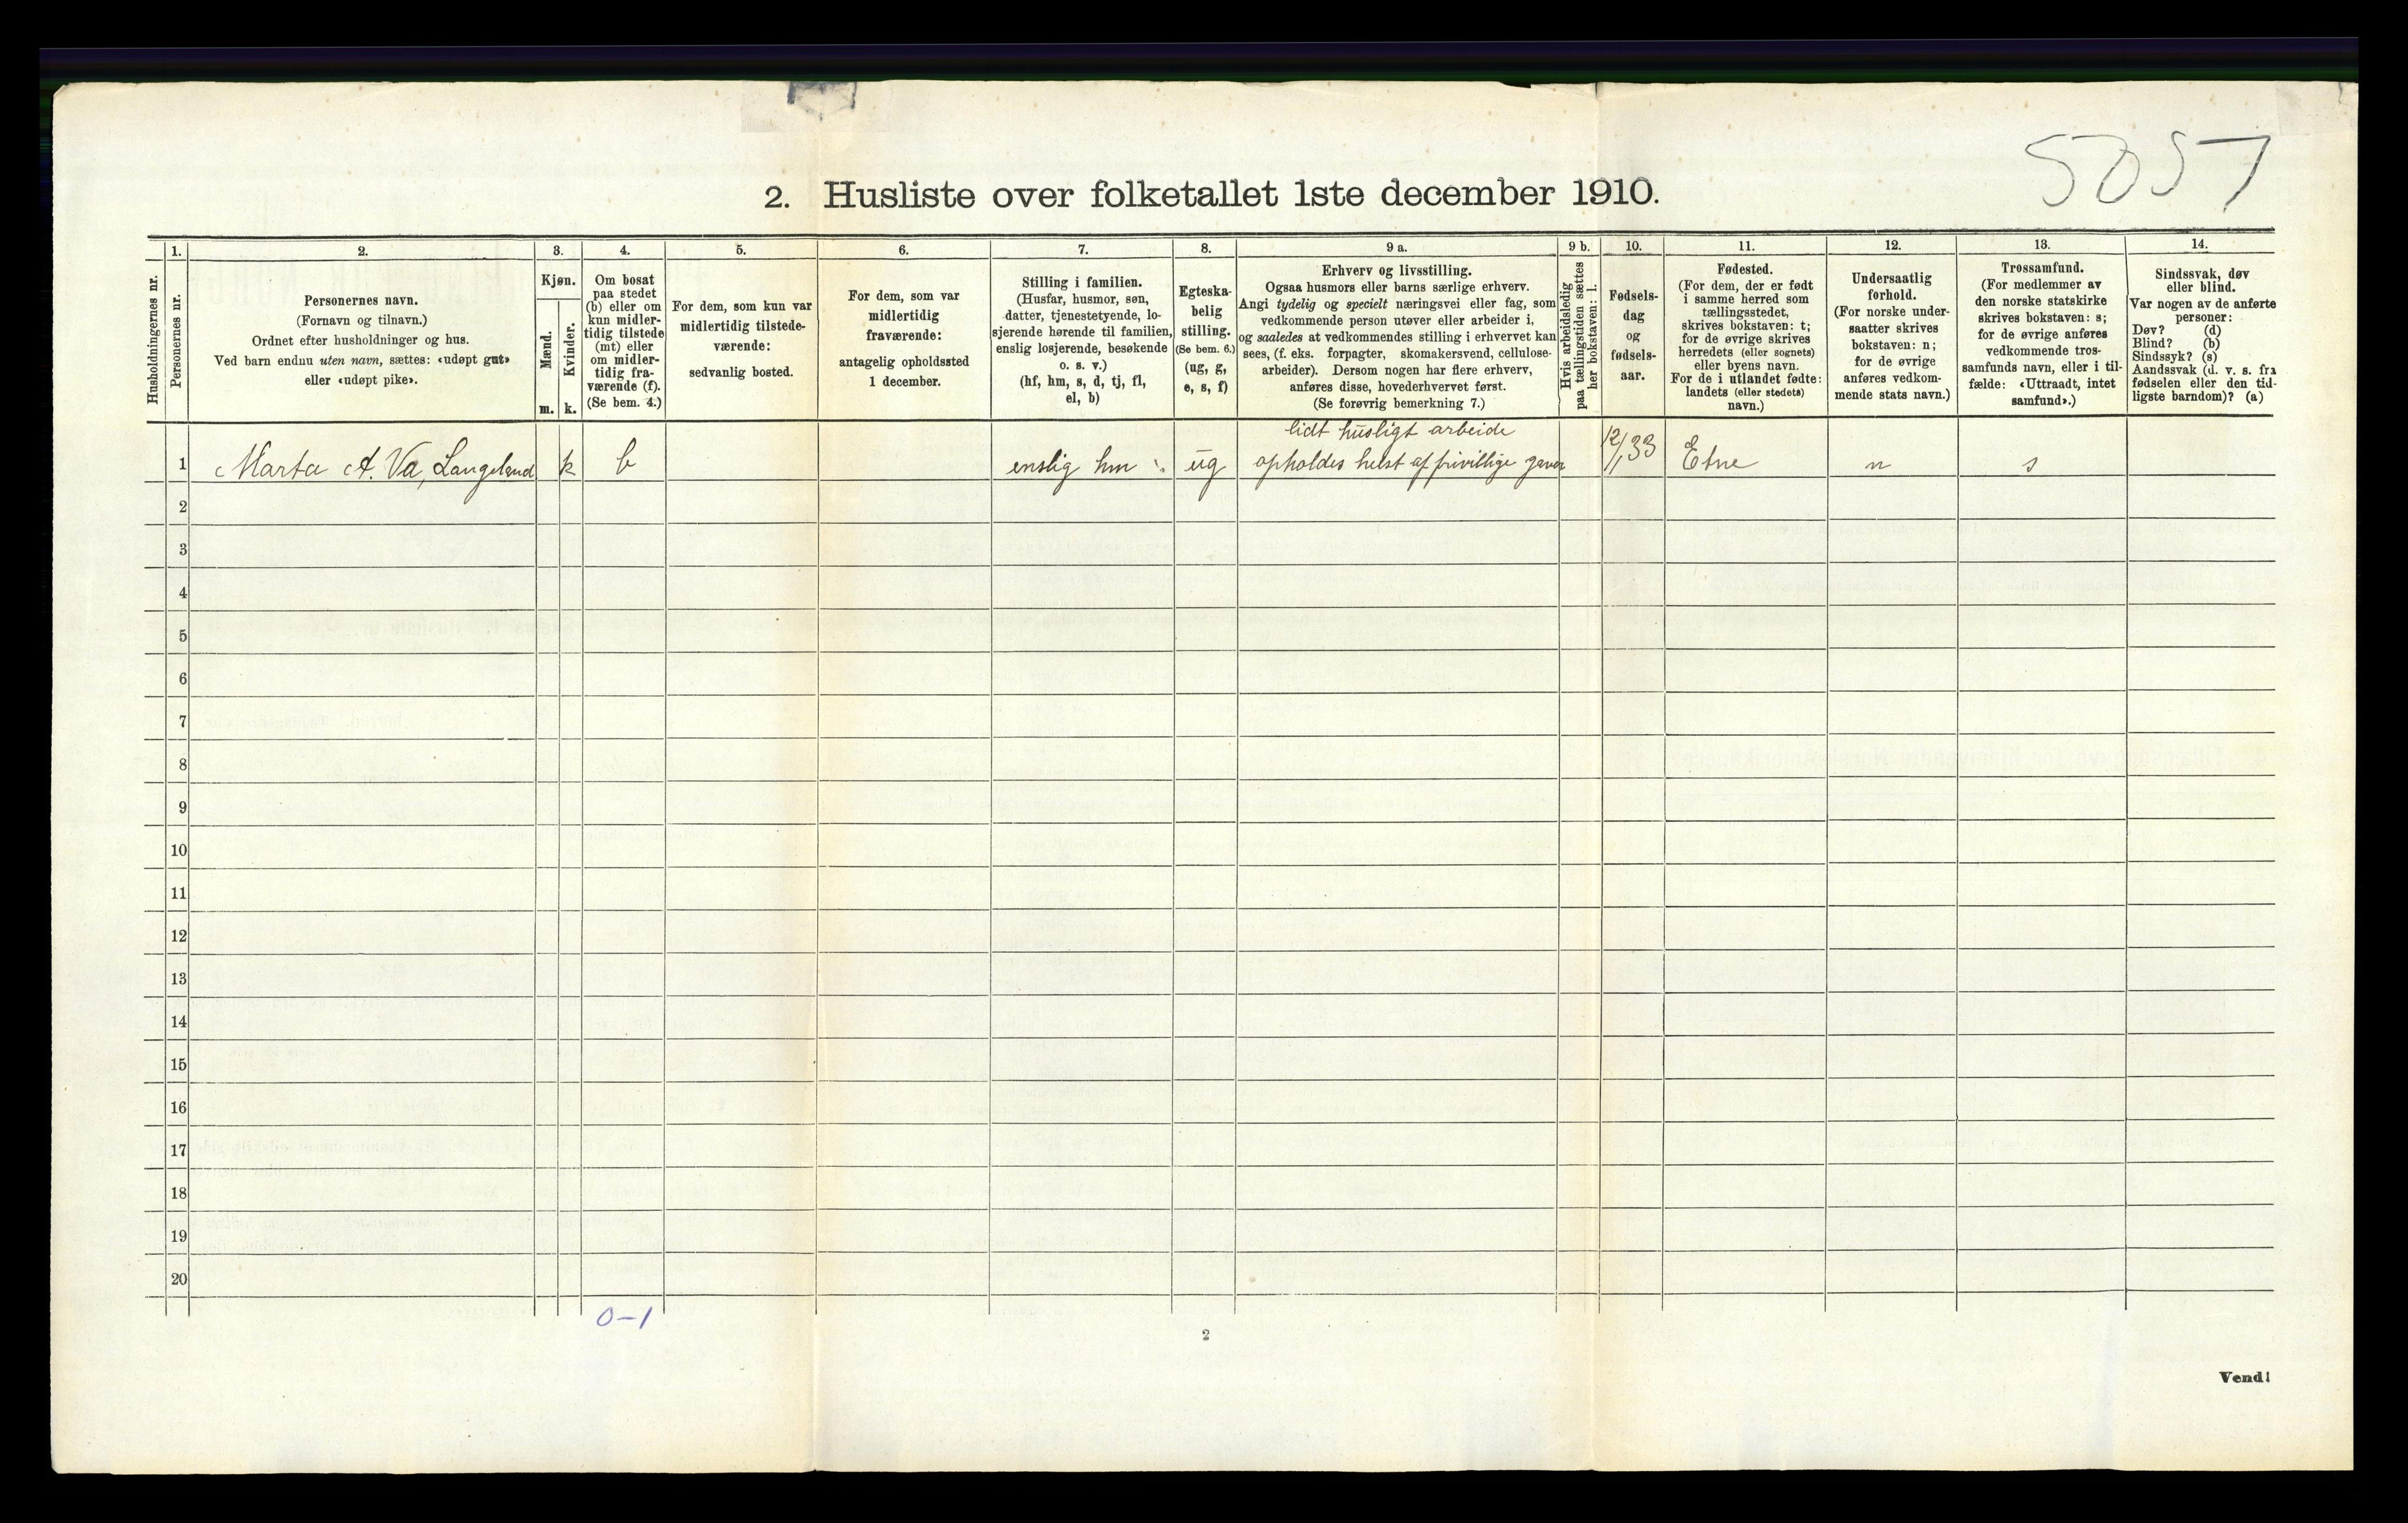 5057
2. Husliste over folketallet 1ste december 1910.
Husholdningernes nr.
1.
Personernes nr.
2.
Personernes navn.
(Fornavn og tilnavn.)
Ordnet efter husholdninger og hus.
Ved barn endnu uten navn, sættes: «udøpt gut»
eller «udøpt pike».
3.
Kjøn.
Mænd.
Kvinder.
m. k.
4.
Om bosat
paa stedet
(b) eller om
kun midler-
tidig tilstede
(mt) eller
om midler-
tidig fra-
værende (f).
(Se bem. 4.)
5.
For dem, som kun var
midlertidig tilstede-
værende:
sedvanlig bosted.
6.
For dem, som var
midlertidig
fraværende:
antagelig opholdssted
1 december.
7.
Stilling i familien.
(Husfar, husmor, søn,
datter, tjenestetyende, lo-
sjerende hørende til familien,
enslig losjerende, besøkende
o. s. v.)
(hf, hm, s, d, tj, fl,
el, b)
8.
Egteska-
belig
stilling.
(Se bem. 6.)
(ug, g,
e, s, f)
9 a.
Erhverv og livsstilling.
Ogsaa husmors eller barns særlige erhverv.
Angi tydelig og specielt næringsvei eller fag, som
vedkommende person utøver eller arbeider i,
og saaledes at vedkommendes stilling i erhvervet kan
sees, (f. eks. forpagter, skomakersvend, cellulose-
arbeider). Dersom nogen har flere erhverv,
anføres disse, hovederhvervet først.
(Se forøvrig bemerkning 7.)
9 b.
Hvis arbeidsledig
paa tællingstiden sættes
her bokstaven: l.
10.
Fødsels-
dag
og
fødsels-
aar.
11.
Fødested.
(For dem, der er født
i samme herred som
tællingsstedet,
skrives bokstaven: t;
for de øvrige skrives
herredets (eller sognets)
eller byens navn.
For de i utlandet fødte:
landets (eller stedets)
navn.)
12.
Undersaatlig
forhold.
(For norske under-
saatter skrives
bokstaven: n;
for de øvrige
anføres vedkom-
mende stats navn.)
13.
Trossamfund.
(For medlemmer av
den norske statskirke
skrives bokstaven: s;
for de øvrige anføres
vedkommende tros-
samfunds navn, eller i til-
fælde: «Uttraadt, intet
samfund».)
14.
Sindssvak, døv
eller blind.
Var nogen av de anførte
personer:
Døv? (d)
Blind? (b)
Sindssyk? (s)
Aandssvak (d. v. s. fra
fødselen eller den tid-
ligste barndom)? (a)
lidt husligt arbeide
1 Marta A. Va, Langeland k b enslig hm ug opholdes helst af frivillige gaver 12/1 33 Etne n s
2
3
4
5
6
7
8
9
10
11
12
13
14
15
16
17
18
19
20
0-1
2
Vend!